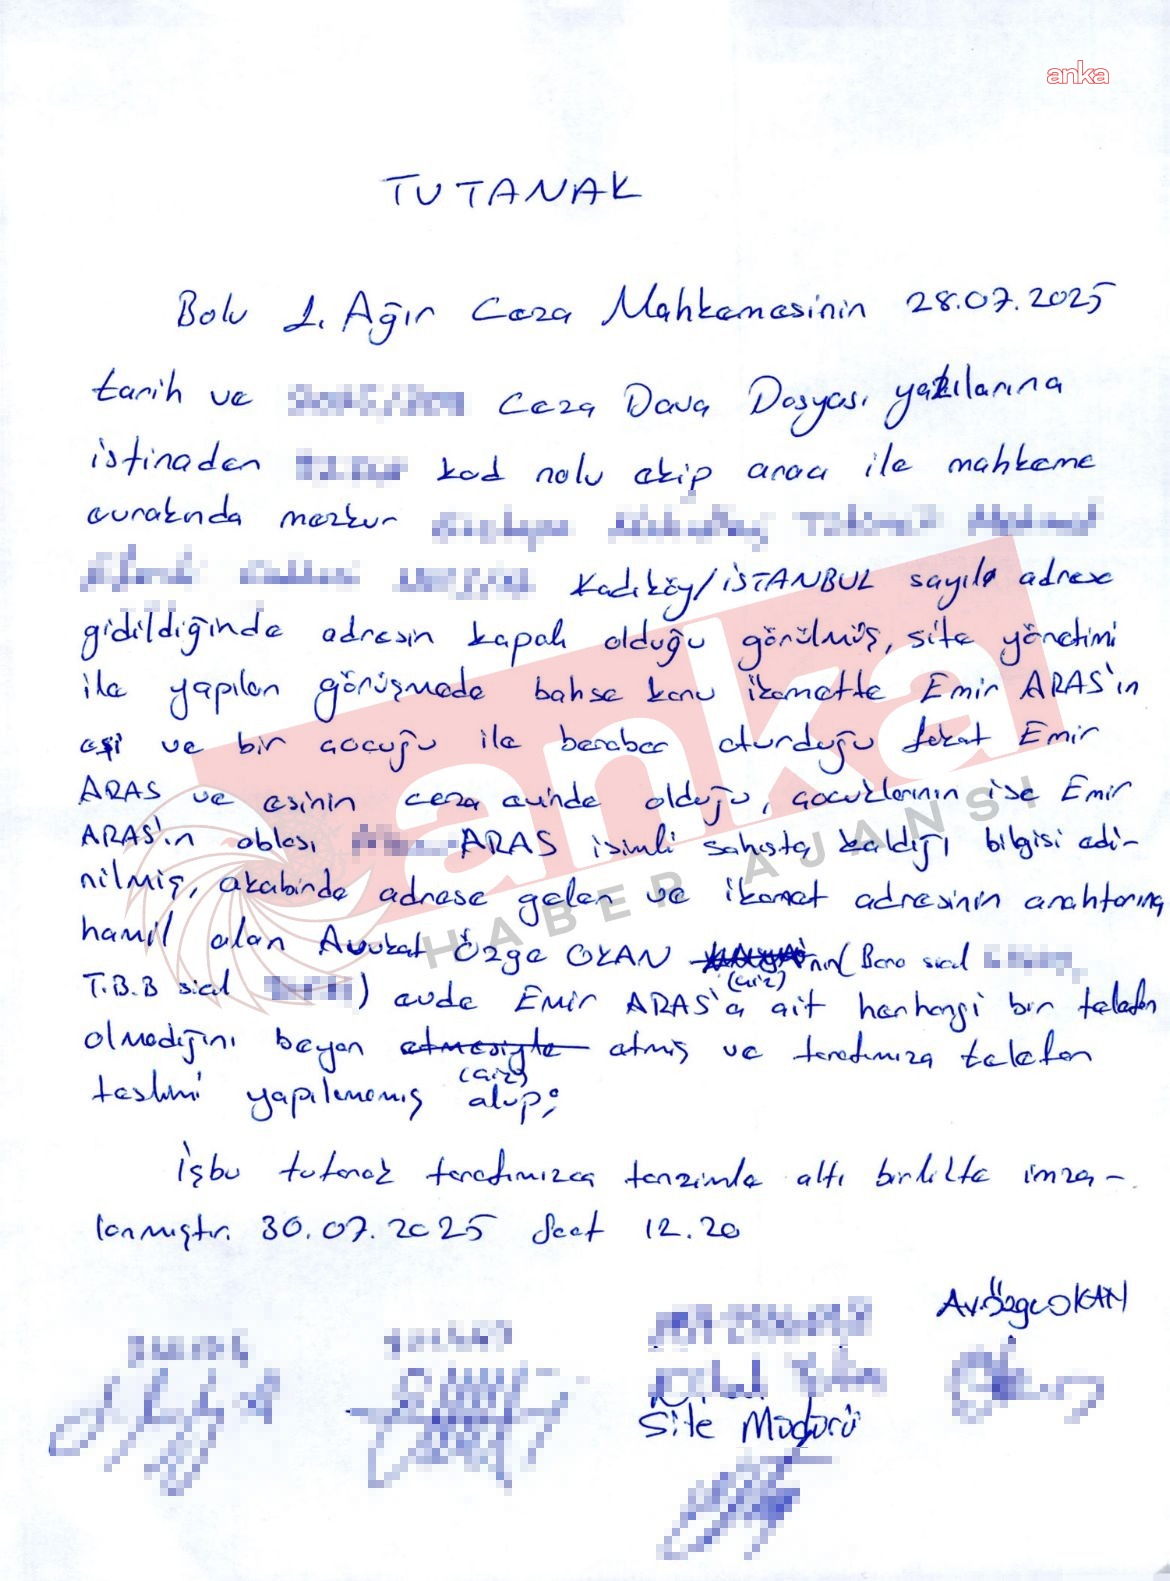 anka
TUTANAK
Bolu 1. Ağır Ceza Mahkemesinin 28.07.2025
tarih ve Ceza Dava Dosyası yazılarına
istinaden kod nolu ekip aracı ile mahkeme
evrakında mezkur
Kadıköy/İSTANBUL sayılı adrese
gidildiğinde adresin kapalı olduğu görülmüş, site yönetimi
ile yapılan görüşmede bahse konu ikamette Emir ARAS'ın
eşi ve bir çocuğu ile beraber oturduğu fakat Emir
ARAS ve eşinin ceza evinde olduğu, çocuklarının ise Emir
ARAS'ın ablası ARAS isimli şahısta kaldığı bilgisi edi-
nilmiş, akabinde adrese gelen ve ikamet adresinin anahtarına
hamil olan Avukat Özge OKAN nin (Baro sicil
(çiz)
T.B.B sicil ) evde Emir ARAS'a ait herhangi bir telefon
olmadığını beyan etmesiyle etmiş ve tarafımıza telefon
(çiz)
teslimi yapılmamış olup;
İşbu tutanak tarafımızca tanzimle altı birlikte imza-
lanmıştır. 30.07.2025 Saat 12.20
Av. Özge OKAN
Site Müdürü
anka
HABER AJANSI